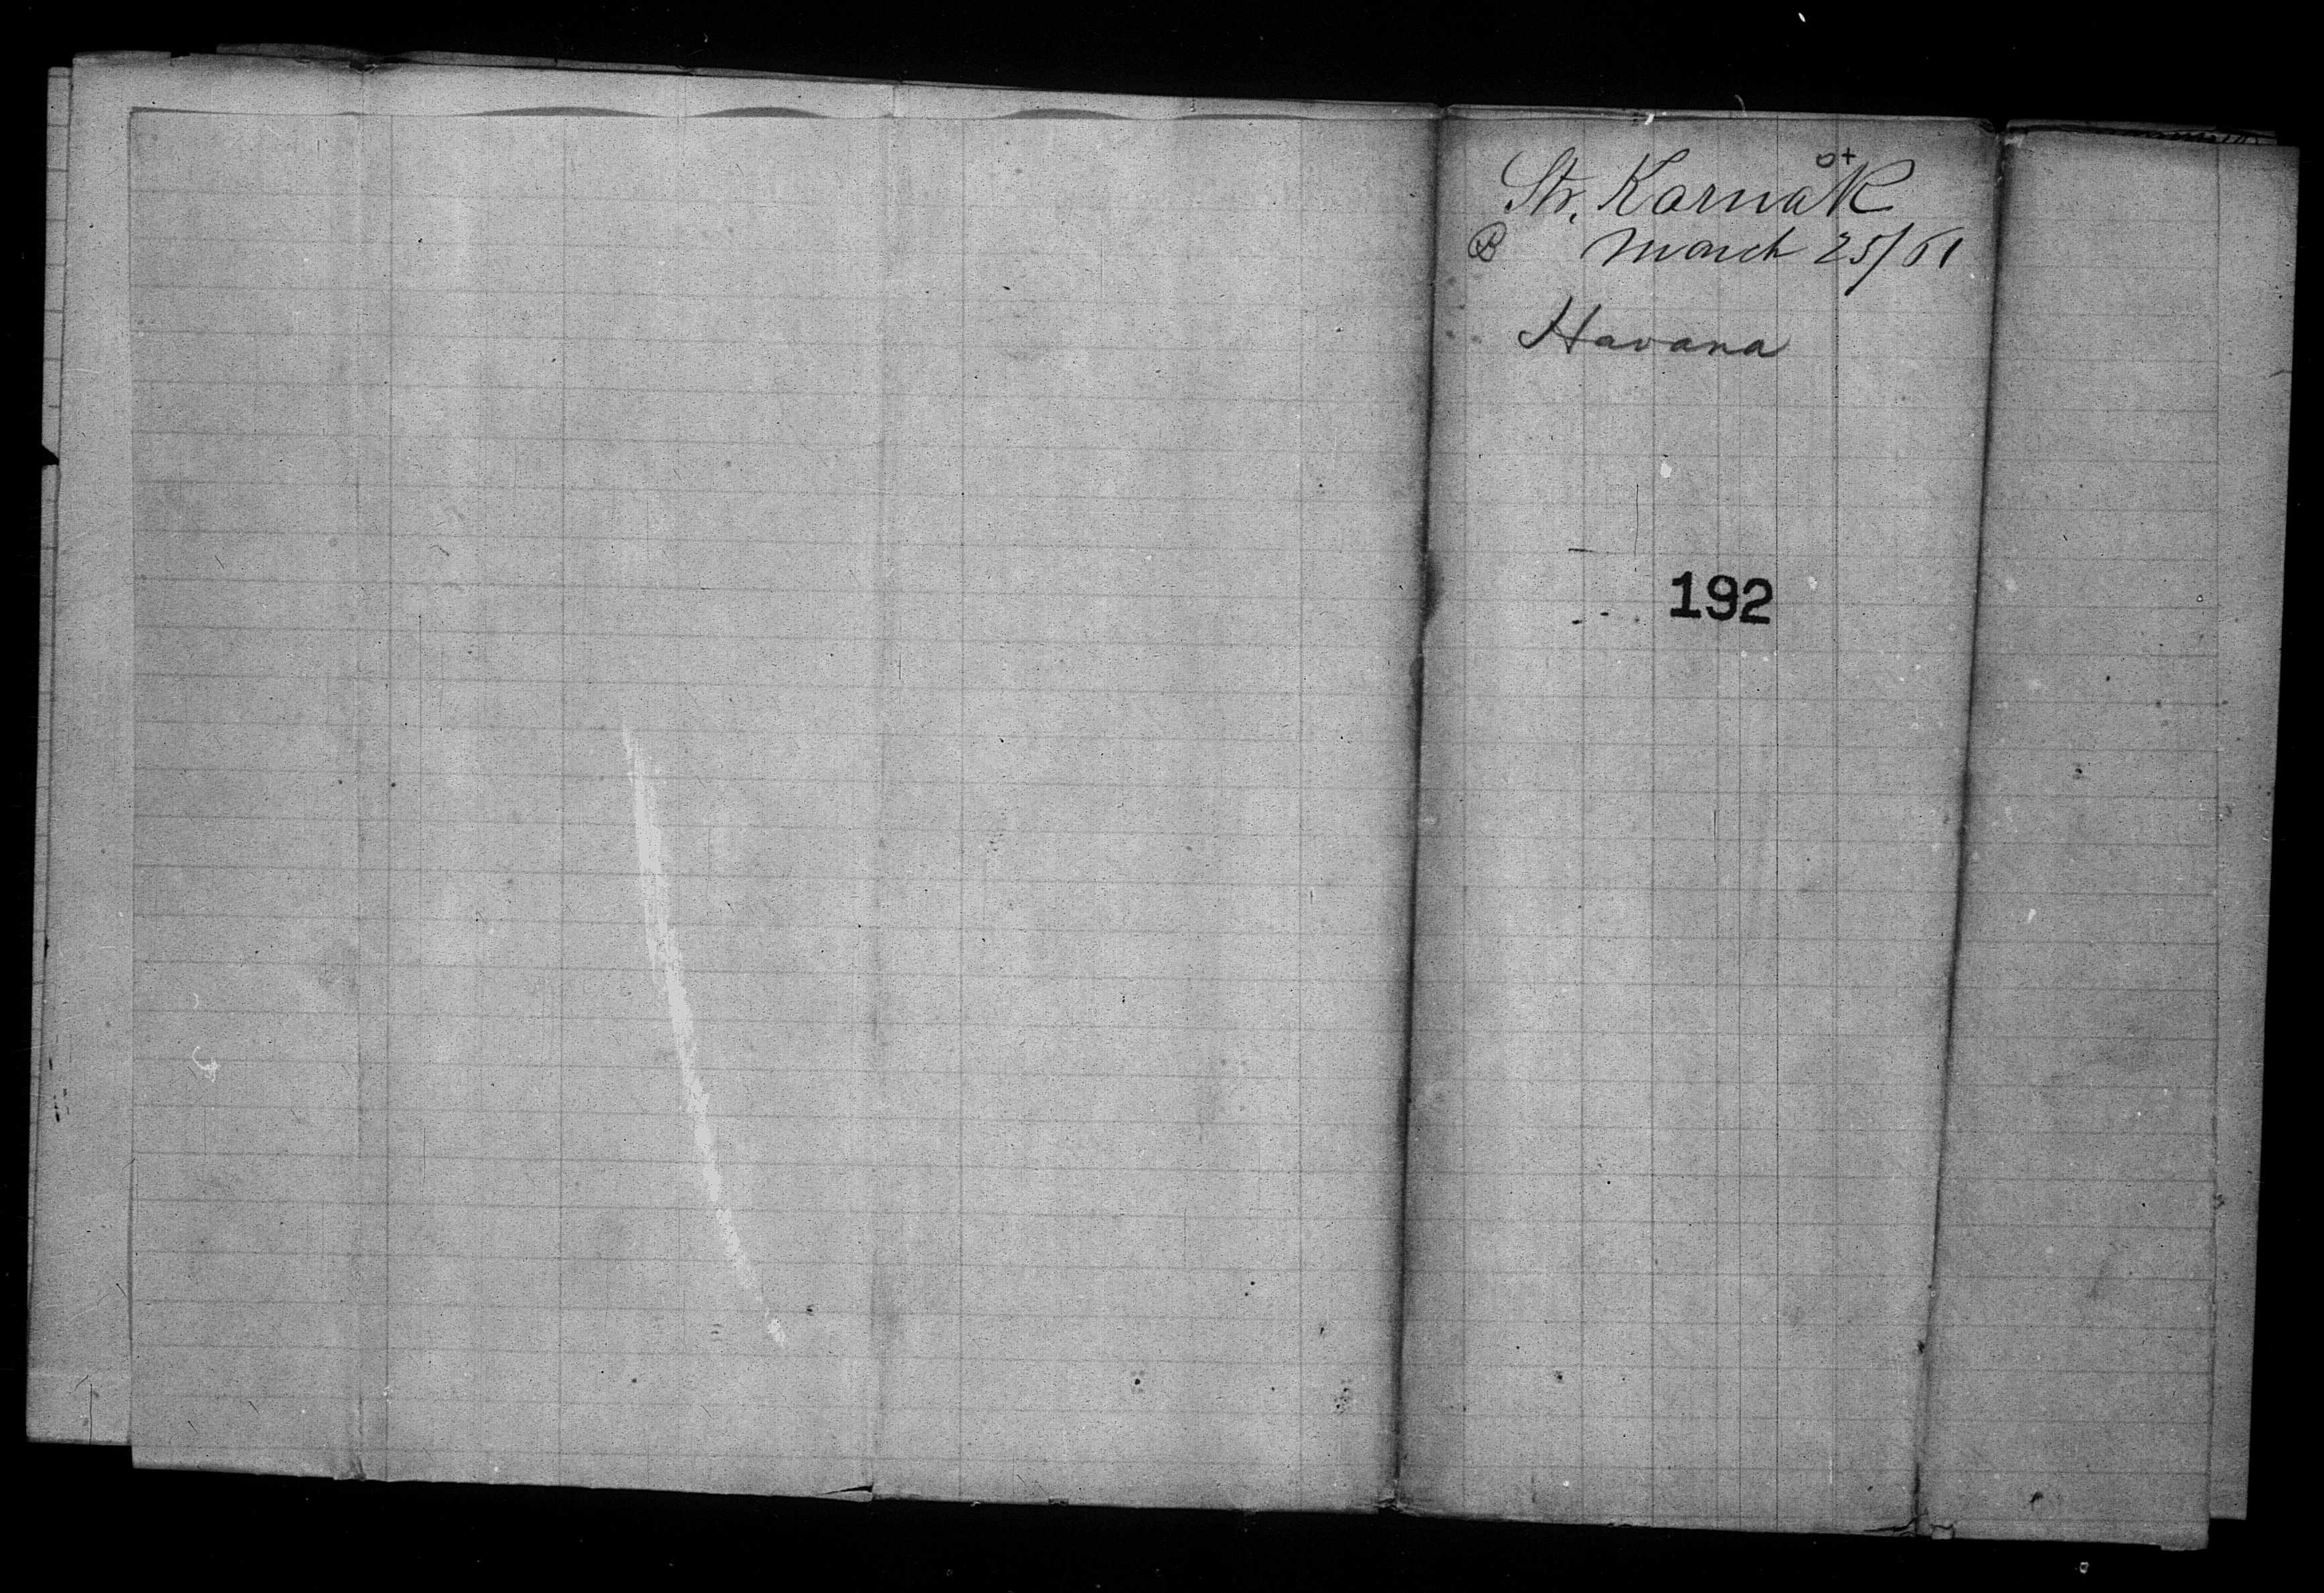 Str. Karnak
B March 25/61
Havana
192